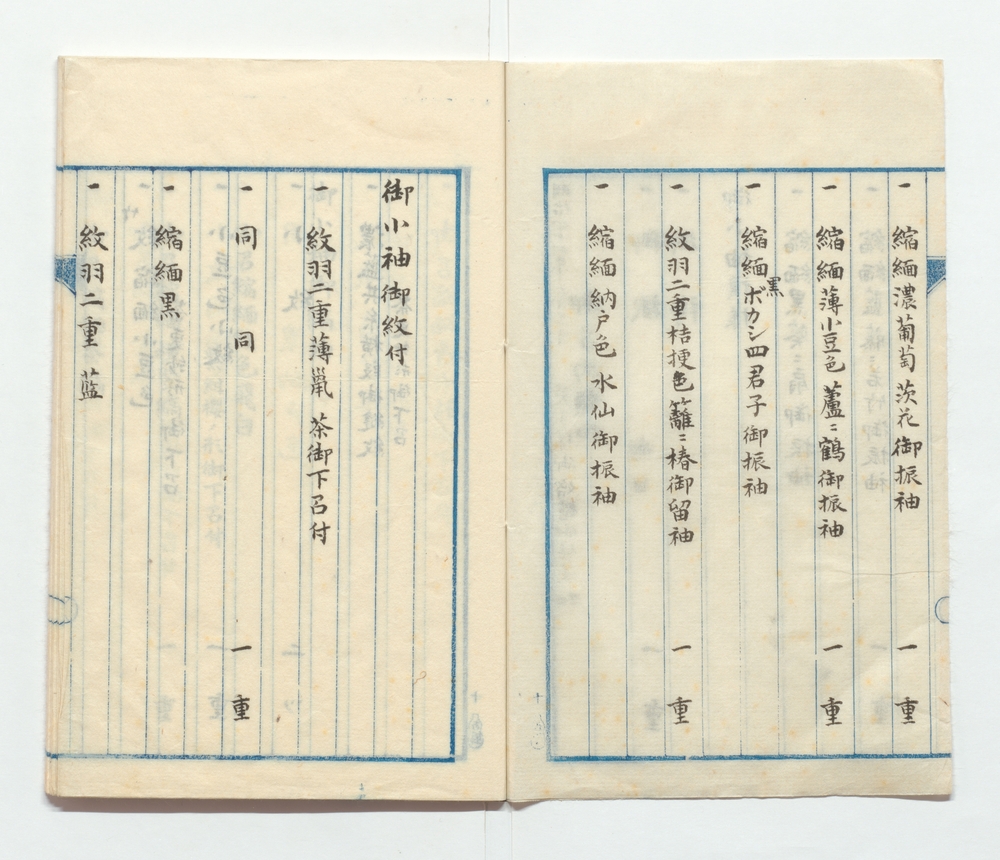 一 縮緬濃葡萄 茨花御振袖 一重
一 縮緬薄小豆色 蘆ニ鶴御振袖 一重
一 縮緬黒ボカシ四君子御振袖
一 紋羽二重桔梗色籬ニ椿御留袖 一重
一 縮緬納戸色 水仙御振袖
御小袖御紋付
一 紋羽二重薄鼠 茶御下召付
一 同 同 一重
一 縮緬黒
一 紋羽二重 藍